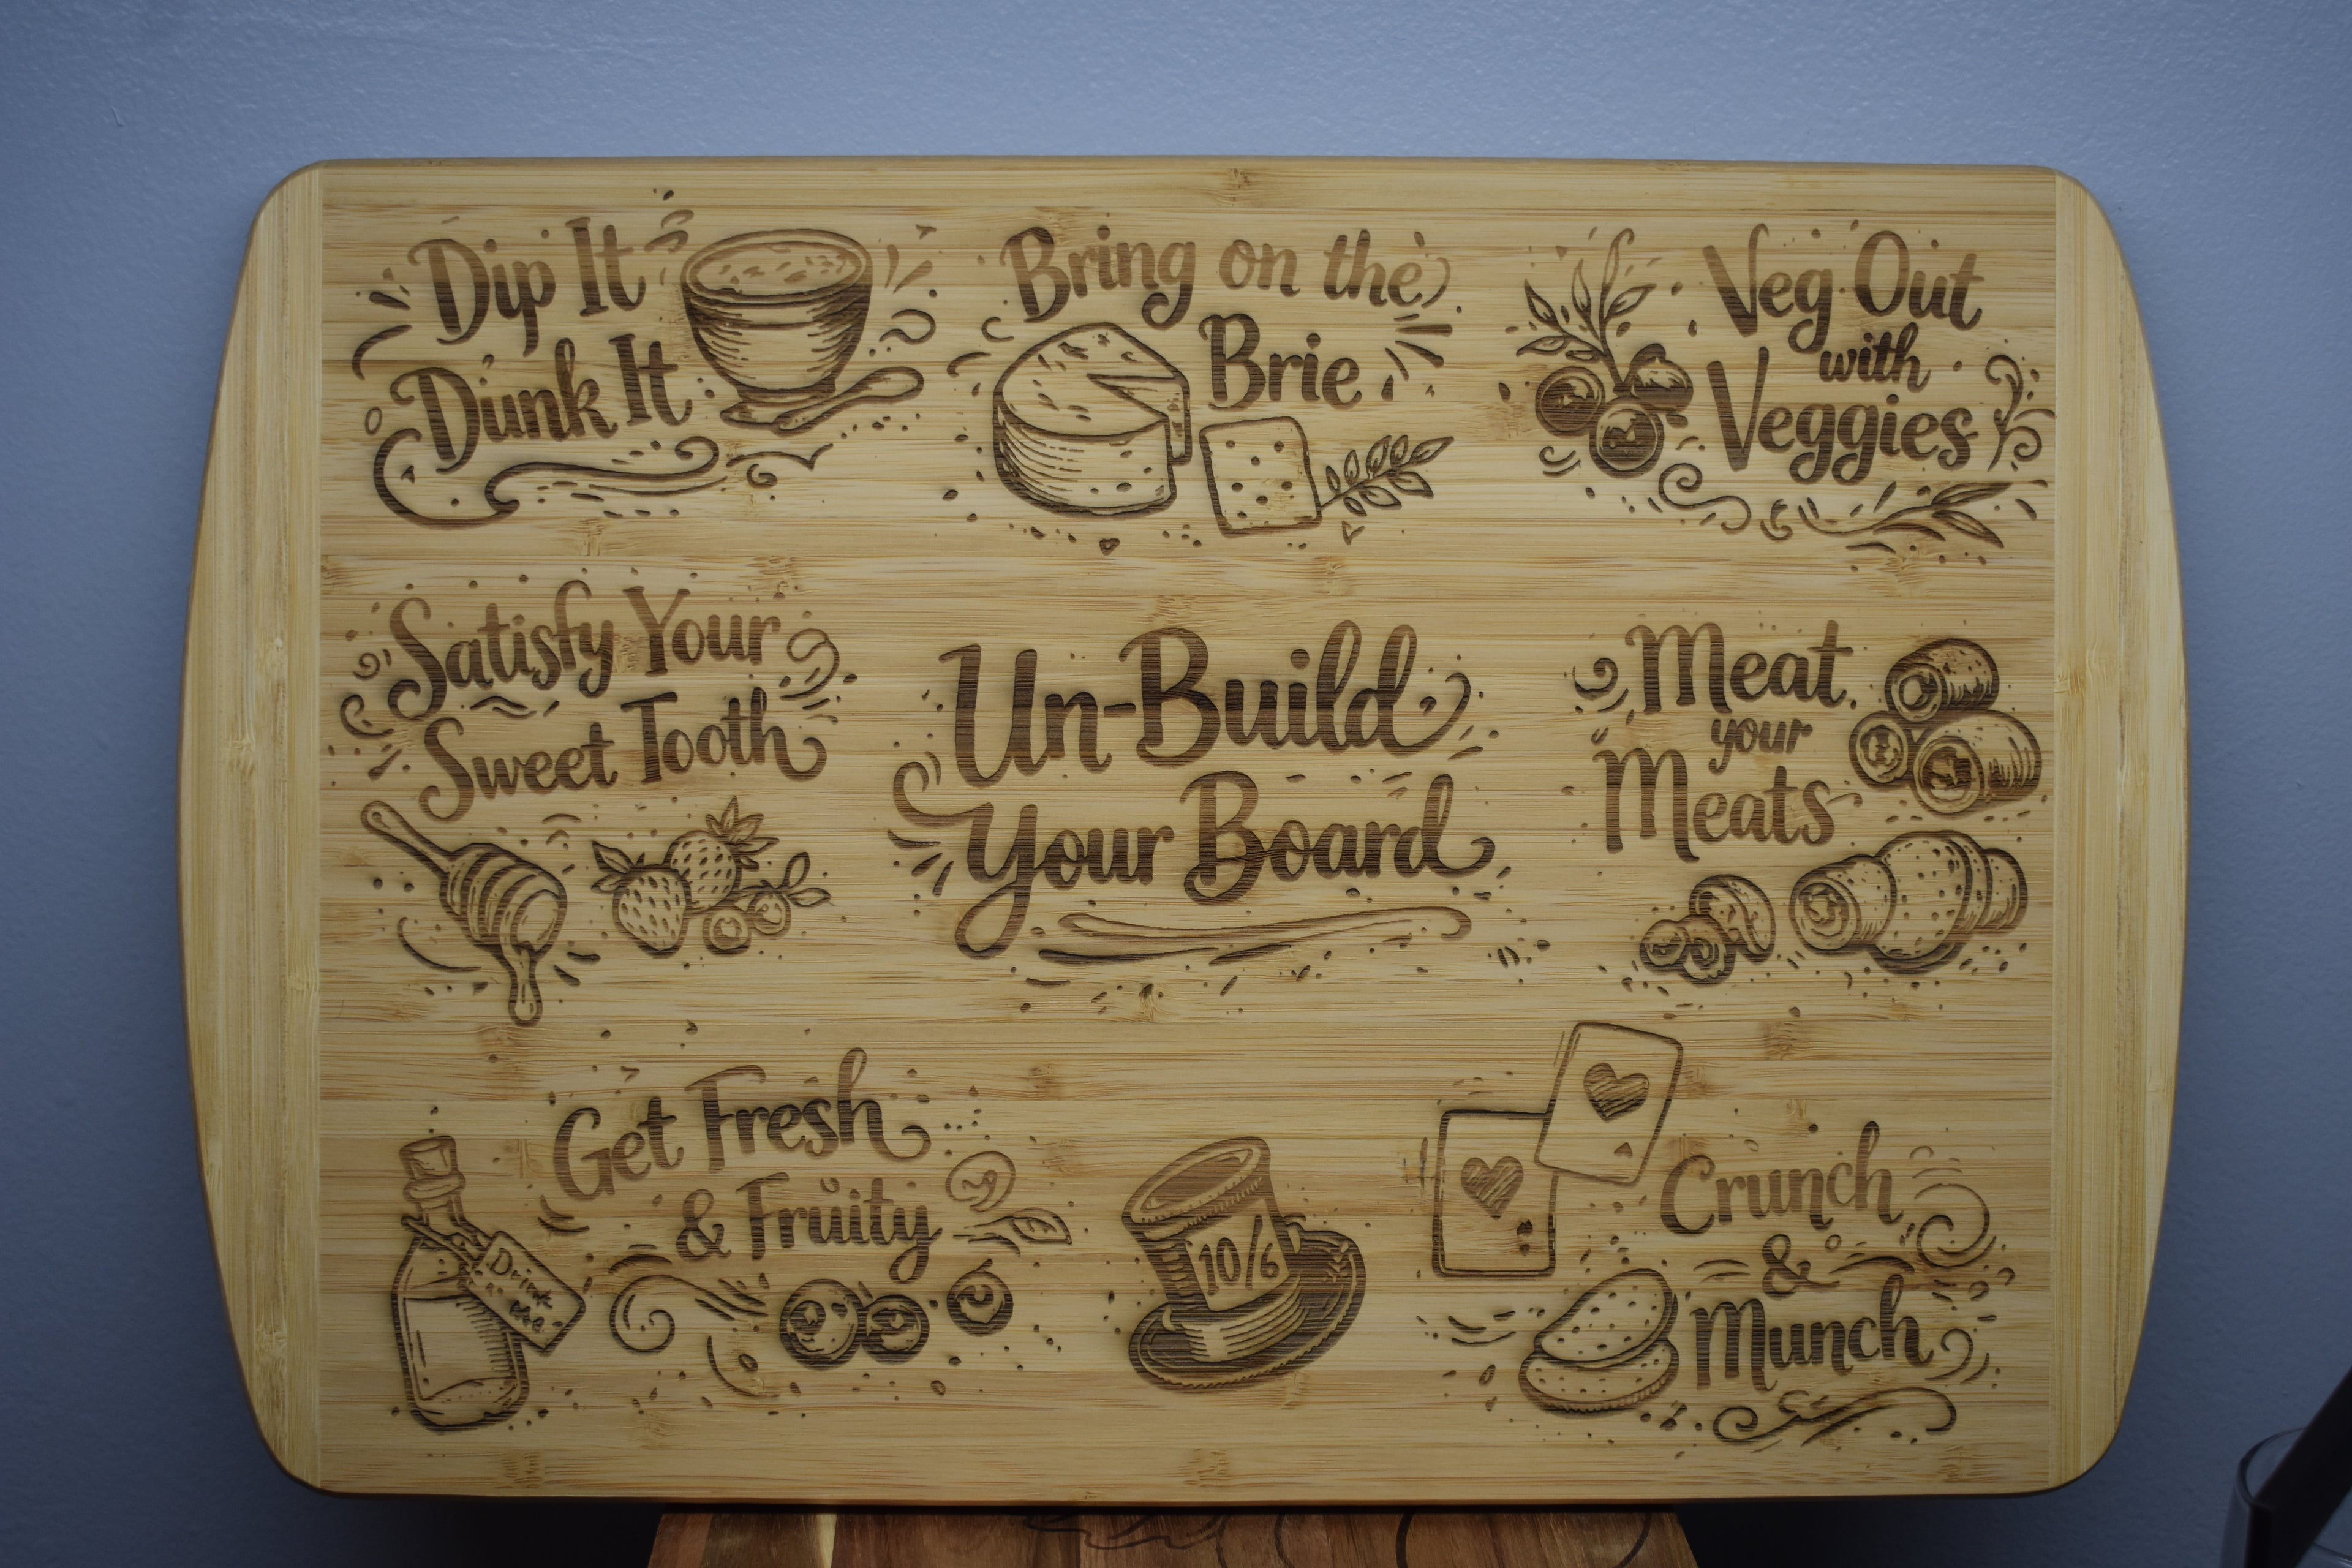 Dip It
Dunk It
Bring on the
Brie
Veg Out
with
Veggies
Satisfy Your
Sweet Tooth
Un-Build
Your Board
Meat
your
Meats
Get Fresh
& Fruity
Drink
10/6
Crunch
&
Munch